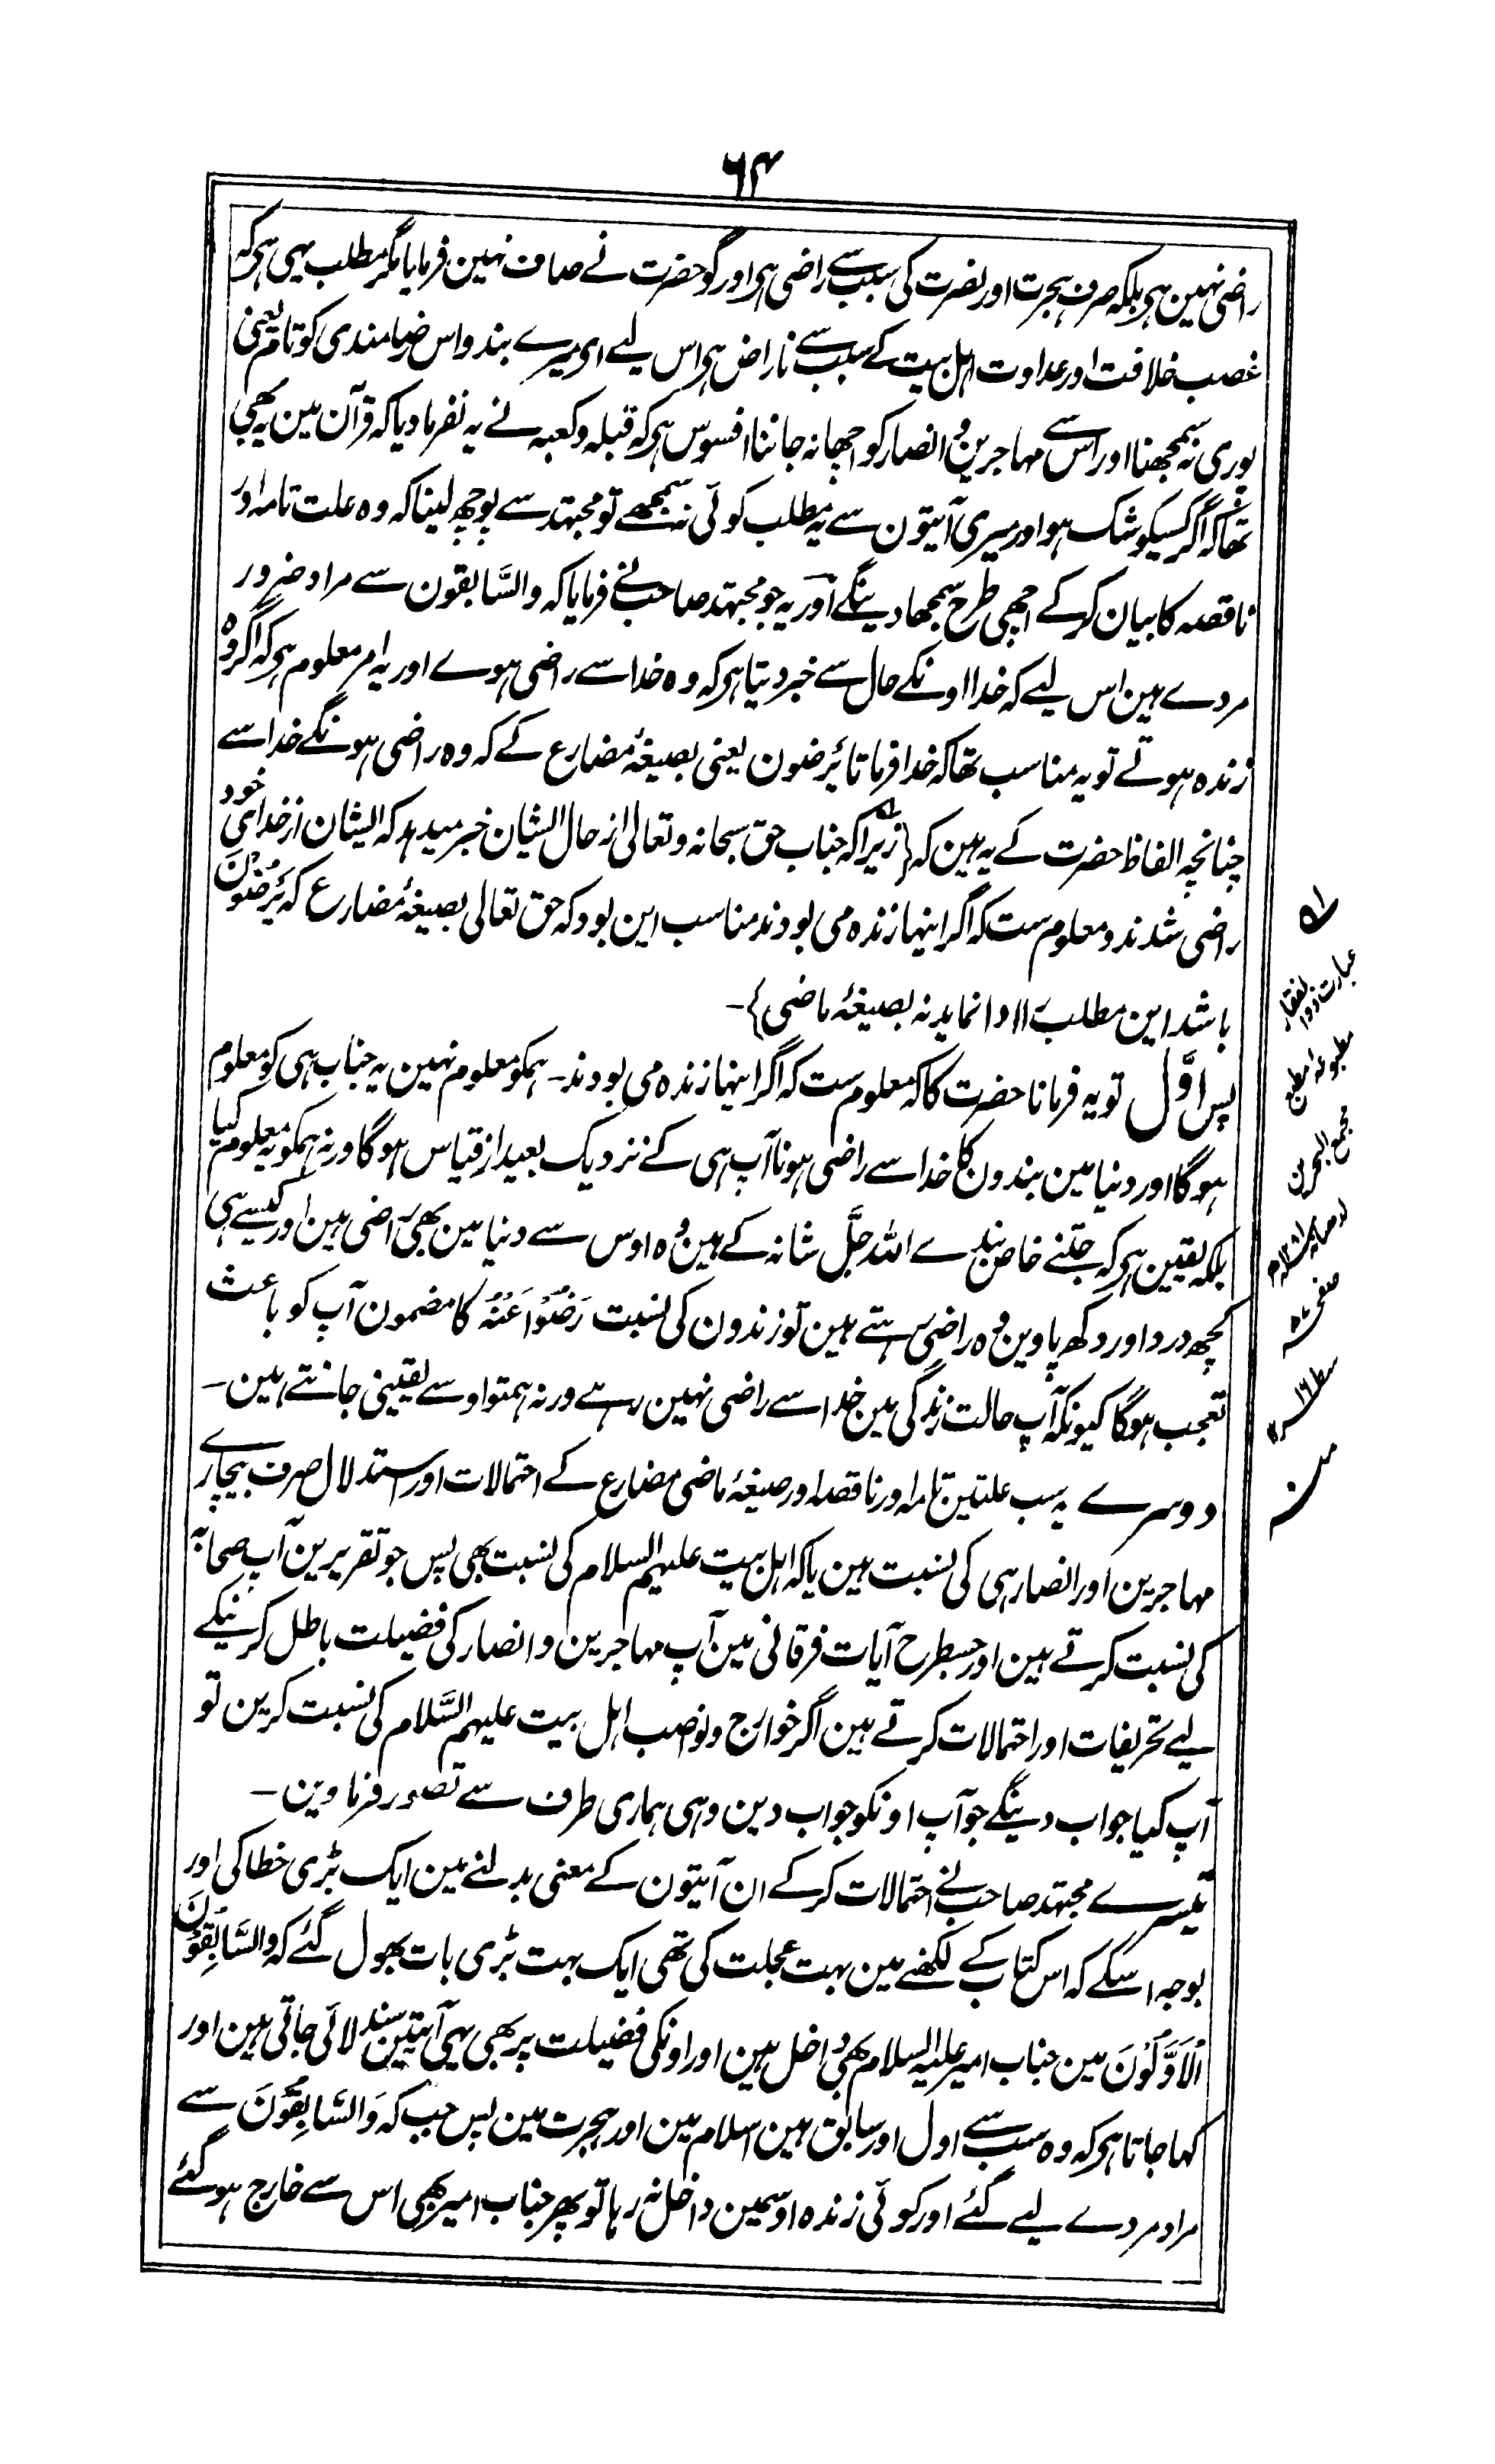 ۶۴
راضی نہین ہی بلکہ صرف ہجرت اور نصرت کی سبب سے راضی ہی اور گو حضرت نے صاف نہین فرمایا مگر مطلب یہی ہی کہ
غصب خلافت اور عداوت اہل بیت کے سبب سے ناراض ہی اس لیے ای میرے بندو اس رضامندی کو تام یعنی
پوری نہ سمجھنا اور اس سے مہاجرین و انصار کو اچھا نہ جاننا افسوس ہی کہ قبلہ و کعبہ نے یہ نفرمادیا کہ قرآن مین یہ بھی
تھا کہ اگر کسیکو شک ہو اور میری آیتون سے یہ مطلب کوئی نہ سمجھے تو مجتہد سے پوچھ لینا کہ وہ علت تامہ اور
ناقصہ کا بیان کرکے اچھی طرح سمجھا دینگے اور یہ جو مجتہد صاحب نے فرمایا کہ والسَّابقون سے مراد ضرور
مردے ہین اس لیے کہ خدا اونکے حال سے خبر دیتا ہی کہ وہ خدا سے راضی ہوے اور یہ امر معلوم ہی کہ اگر وہ
زندہ ہوتے تو یہ مناسب تھا کہ خدا فرماتا یَرضون یعنی بصیغۂ مضارع کے کہ وہ راضی ہونگے خدا سے
چنانچہ الفاظ حضرت کے یہ ہین کہ {زیرا کہ جناب حق سبحانہ و تعالی از حال ایشان خبر میدہد کہ ایشان از خدای خود
راضی شدند و معلوم ست کہ اگر اینہا زندہ می بودند مناسب این بود کہ حق تعالی بصیغۂ مضارع کہ یَرْضَوْنَ
باشد این مطلب را ادا نماید نہ بصیغۂ ماضی}۔
پس اوَّل تو یہ فرمانا حضرت کا کہ معلوم ست کہ اگر اینہا زندہ می بودند۔ ہمکو معلوم نہین یہ جناب ہی کو معلوم
ہوگا اور دنیا مین بندون کا خدا سے راضی ہونا آپ ہی کے نزدیک بعید از قیاس ہوگا ورنہ ہمکو یہ معلوم کیا
بلکہ یقین ہی کہ جتنے خاص بندے اللہ جلَّ شانہ کے ہین وہ اوس سے دنیا مین بھی راضی ہین اور کیسے ہی
کچھ درد اور دکھ پاوین وہ راضی رہتے ہین تو زندون کی نسبت رَضُوْا عَنْہُ کا مضمون آپ کو باعث
تعجب ہوگا کیونکہ آپ حالت زندگی مین خدا سے راضی نہین رہے ورنہ ہمتو اوسے یقینی جانتے ہین۔
دوسرے یہ سب علتین تامہ اور ناقصہ اور صیغۂ ماضی مضارع کے احتمالات اور استدلال صرف بیچارے
مہاجرین اور انصار ہی کی نسبت ہین یا کہ اہل بیت علیہم السلام کی نسبت بھی پس جو تقریرین آپ صحابہ
کی نسبت کرتے ہین اور جسطرح آیات فرقانی مین آپ مہاجرین و انصار کی فضیلت باطل کرنیکے
لیے تحریفات اور احتمالات کرتے ہین اگر خوارج و نواصب اہل بیت علیہم السَّلام کی نسبت کرین تو
آپ کیا جواب دینگے جو آپ اونکو جواب دین وہی ہماری طرف سے تصور فرماوین۔
تیسرے مجتہد صاحب نے احتمالات کرکے ان آیتون کے معنی بدلنے مین ایک بڑی خطا کی اور
بوجہ اسکے کہ اس کتاب کے لکھنے مین بہت عجلت کی تھی ایک بہت بڑی بات بھول گئے کہ والسَّابِقُوْنَ
الْاَوَّلُوْنَ مین جناب امیر علیہ السلام بھی داخل ہین اور اونکی فضیلت پر بھی یہی آیتین سند لائی جاتی ہین اور
کہا جاتا ہی کہ وہ سب سے اول اور سابق ہین اسلام مین اور ہجرت مین پس جب کہ وَالسَّابِقُوْنَ سے
مراد مردے لیے گئے اور کوئی زندہ اوسمین داخل نہ رہا تو پھر جناب امیر بھی اس سے خارج ہوگئے
عبارت ذوالفقار
مطبوعہ مطبع
مجمع البحرین
لودھیانہ
صفحہ
سطر ۱۶